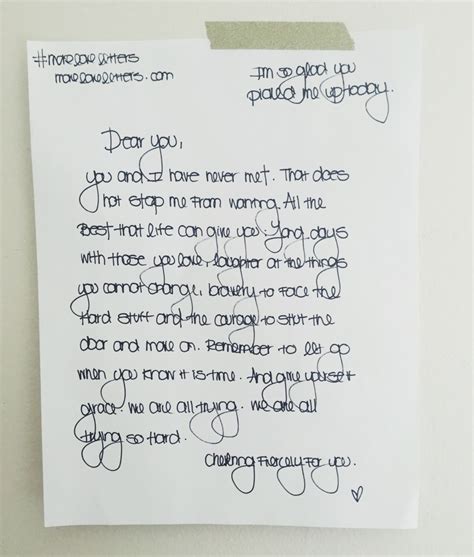 #moreloveletters
moreloveletters.com
I'm so glad you
picked me up today.
Dear you,
you and I have never met. That does
not stop me from wanting. All the
Best that life can give you. Long days
with those you love, laughter at the things
you cannot change, bravery to face the
hard stuff and the courage to shut the
door and move on. Remember to let go
when you know it is time. And give yourself
grace. We are all trying. We are all
trying so hard.
Cheering Fiercely For you.
♡